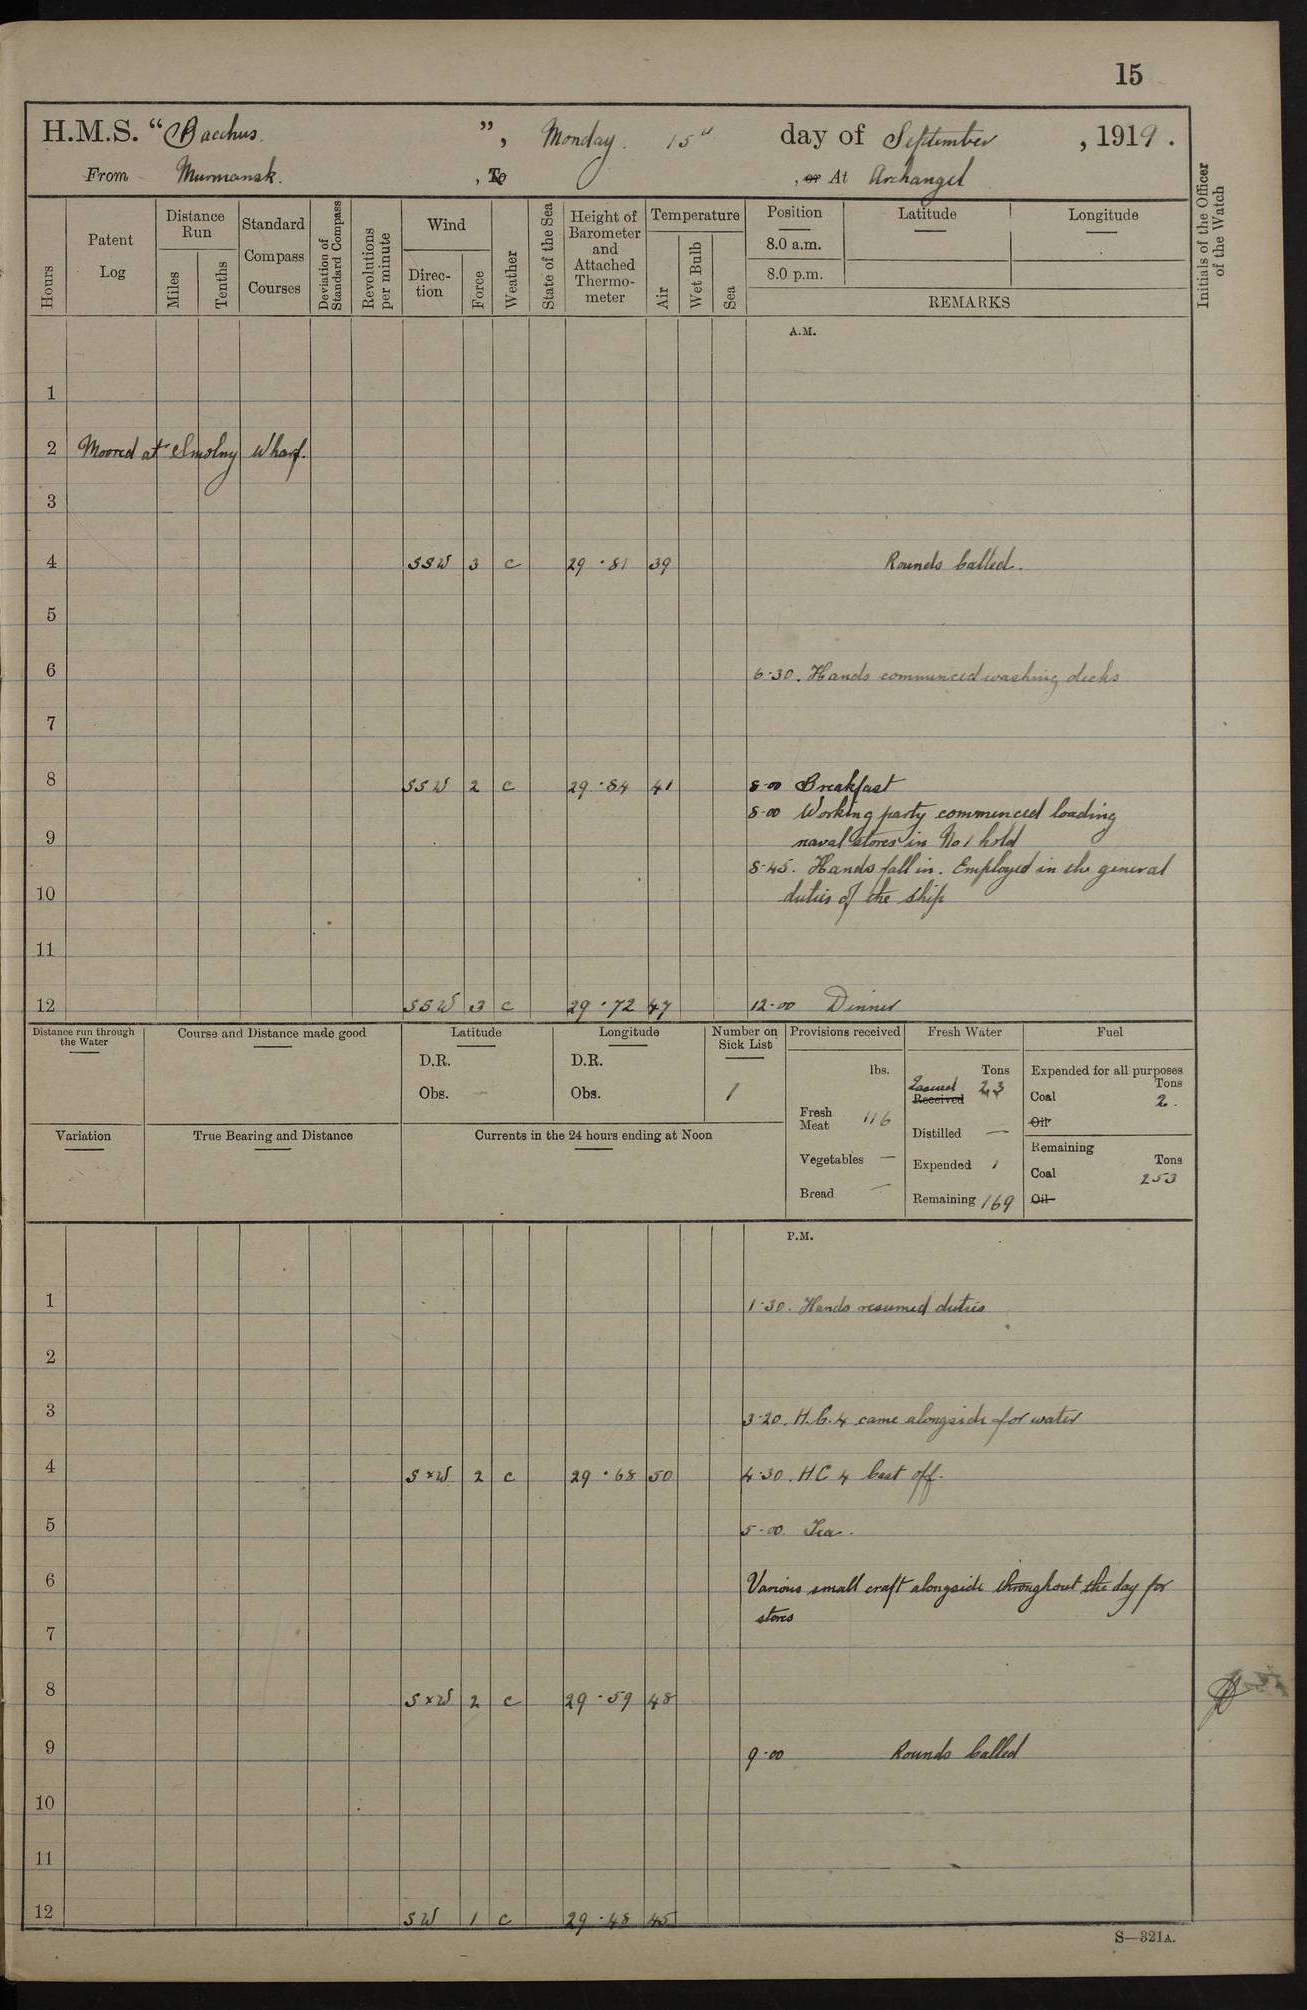 15
H.M.S. "Bacchus.", Monday. 15th day of September, 1919.
From Murmansk. , To , or At Archangel
Hours
Patent Log
Distance Run
Miles
Tenths
Standard Compass Courses
Deviation of Standard Compass
Revolutions per minute
Wind
Direction
Force
Weather
State of the Sea
Height of Barometer and Attached Thermometer
Temperature
Air
Wet Bulb
Sea
Position
Latitude
Longitude
8.0 a.m.
8.0 p.m.
REMARKS
Initials of the Officer of the Watch
A.M.
1
2 Moored at Smolny Wharf.
3
4 SSW 3 c 29.81 39 Rounds Called.
5
6 6-30. Hands commenced washing decks
7
8 SSW 2 c 29.84 41 8-00 Breakfast
8-00 Working party commenced loading
9 naval stores in No 1 hold
8-45. Hands fall in. Employed in the general
10 duties of the ship
11
12 SSW 3 c 29.72 47 12-00 Dinner
Distance run through the Water
Course and Distance made good
Latitude
D.R.
Obs. —
Longitude
D.R.
Obs.
Number on Sick List
1
Provisions received
lbs.
Fresh Meat 116
Vegetables —
Bread —
Fresh Water
Tons
Issued Received 23
Distilled —
Expended 1
Remaining 169
Fuel
Expended for all purposes
Tons
Coal 2.
Oil
Remaining
Tons
Coal 253
Oil
Variation
True Bearing and Distance
Currents in the 24 hours ending at Noon
P.M.
1 1-30. Hands resumed duties
2
3 3-20. H.C. 4 came alongside for water
4 SxW 2 c 29.68 50 4-30. HC 4 Cast off.
5 5-00. Tea.
6 Various small craft alongside throughout the day for
stores
7
8 SxW 2 c 29.59 48
9 9-00 Rounds Called
10
11
12 SW 1 c 29.48 45
S—321A.